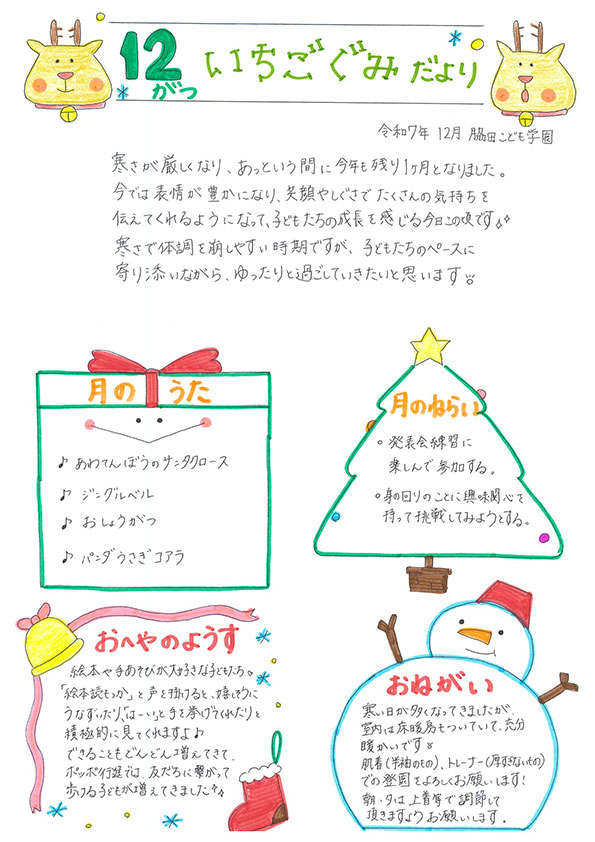 12がつ いちごぐみだより
令和7年 12月 脇田こども学園
寒さが厳しくなり、あっという間に今年も残り1ヶ月となりました。
今では表情が豊かになり、笑顔やしぐさでたくさんの気持ちを
伝えてくれるようになって、子どもたちの成長を感じる今日この頃です♪
寒さで体調を崩しやすい時期ですが、子どもたちのペースに
寄り添いながら、ゆったりと過ごしていきたいと思います
月のうた
♪ あわてんぼうのサンタクロース
♪ ジングルベル
♪ おしょうがつ
♪ パンダうさぎコアラ
月のねらい
○ 発表会練習に
楽しんで参加する。
○ 身の回りのことに興味関心を
持って挑戦してみようとする。
おへやのようす
絵本や手あそびが大好きな子どもたち
「絵本読もっか」と声を掛けると、嬉しそうに
うなずいたり、「はーい」と手を挙げてくれたりと
積極的に見てくれますよ♪
できることもどんどん増えてきて、
ポッポ行進では、友だちに繋がって
歩ける子どもが増えてきました
おねがい
寒い日が多くなってきましたが、
室内は床暖房もついていて、充分
暖かいです
肌着(半袖のもの)、トレーナー(厚すぎないもの)
での登園をよろしくお願いします!
朝・夕は上着等で調節して
頂きますようお願いします。